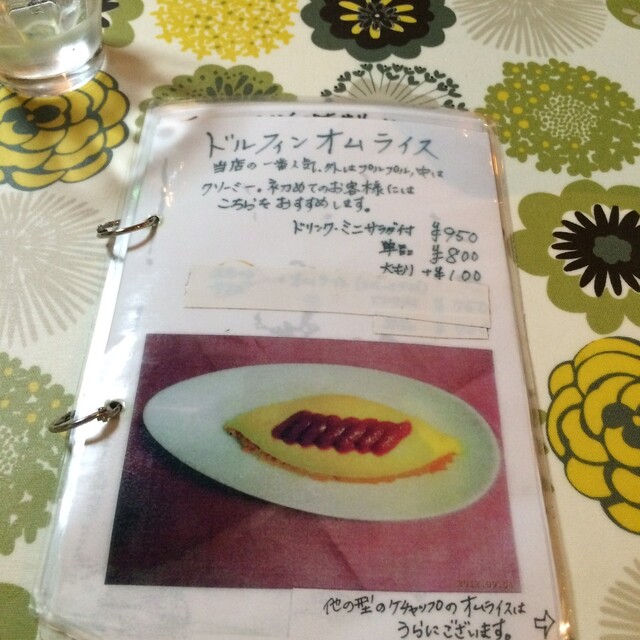 ドルフィンオムライス
当店の一番人気、外はプルンプルン、中は
クリーミー。初めてのお客様には
こちらをおすすめします。
ドリンク・ミニサラダ付 ¥950
単品 ¥800
大もり +¥100
他の型のケチャップのオムライスは
うらにございます。